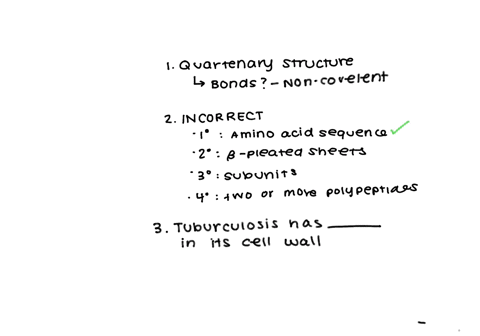 1. Quartenary structure
↳ Bonds? - Non-covelent
2. INCORRECT
· 1° : Amino acid sequence ✓
· 2° : β-pleated sheets
· 3° : subunits
· 4° : two or more polypeptides
3. Tuburculosis has ______
in its cell wall